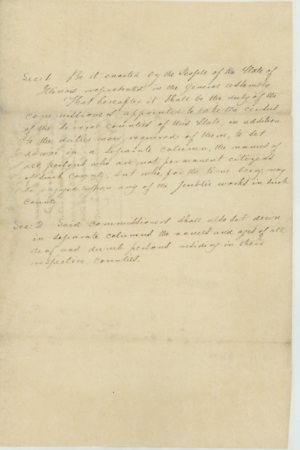 Sec. 1. Be it enacted by the People of the State of
Illinois represented in the General Assembly
That hereafter it shall be the duty of the
commissioners appointed to take the census
of the several counties of this State, in addition
to the duties now required of them, to set
down in a separate column, the names of
all persons who are not permanent citizens
of such county, but who for the time being may
be engaged upon any of the public works in such
county
Sec. 2 Said commissioners shall also set down
in separate columns the names and ages of all
deaf and dumb persons residing in their
respective counties.